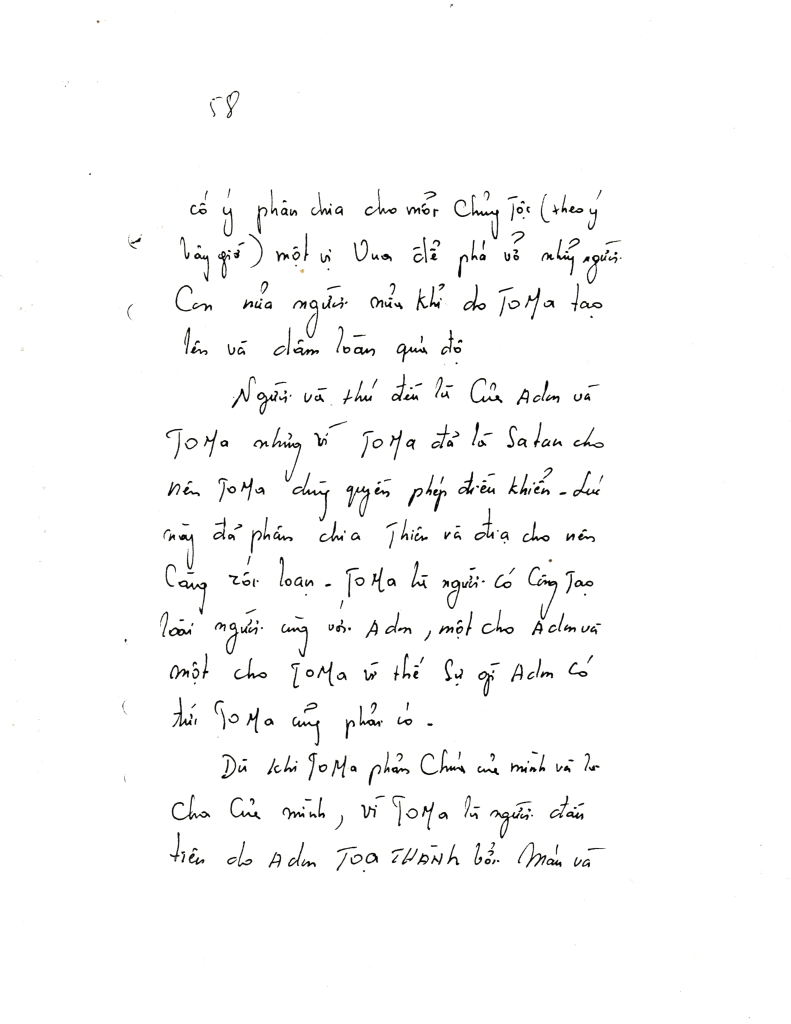 58
cố ý phân chia cho mỗi Chủng Tộc (theo ý
bây giờ) một vị Vua để phá vở những người
Con nửa người nửa khỉ do ToMa tạo
lên và dâm loàn quá độ
Người và thú đều là Của Adm và
ToMa nhưng vì ToMa đả là Satan cho
nên ToMa dùng quyền phép điều khiển - Lúc
này đả phân chia Thiên và địa cho nên
Càng rối loạn - ToMa là người có Công Tạo
loài người cùng với Adm, một cho Adm và
một cho ToMa vì thế Sự gì Adm Có
thì ToMa cũng phải có -
Dù khi ToMa phản Chúa của mình và là
cha Của mình, vì ToMa là người đầu
tiên do Adm TỌA THÀNh bởi Máu và